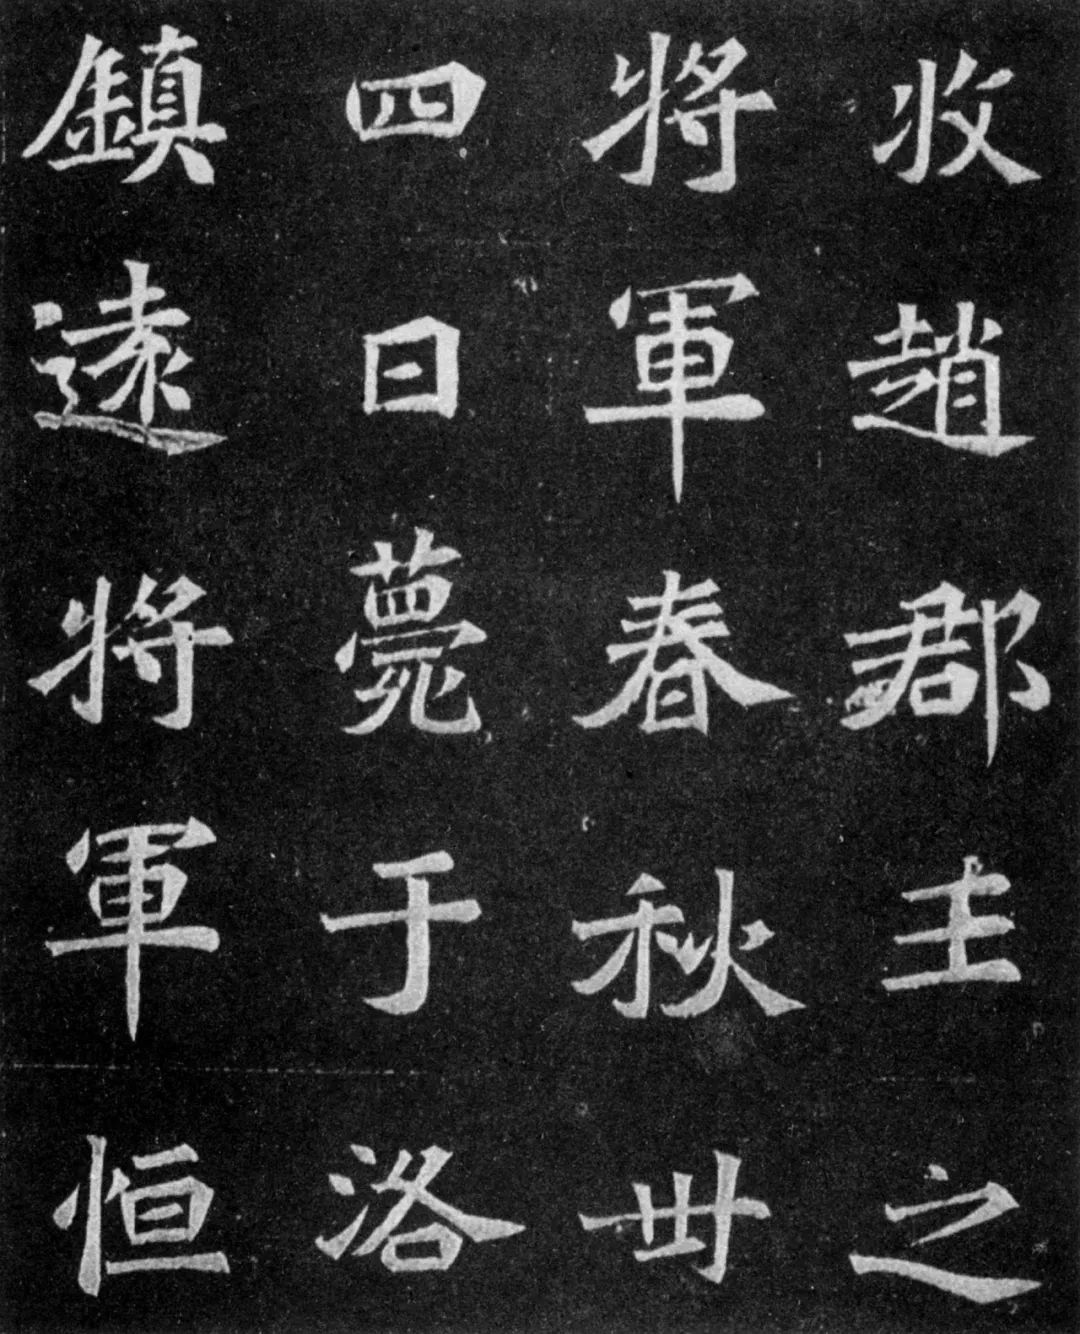 收趙郡主之
將軍春秋丗
四日薨于洛
鎮遠將軍恒